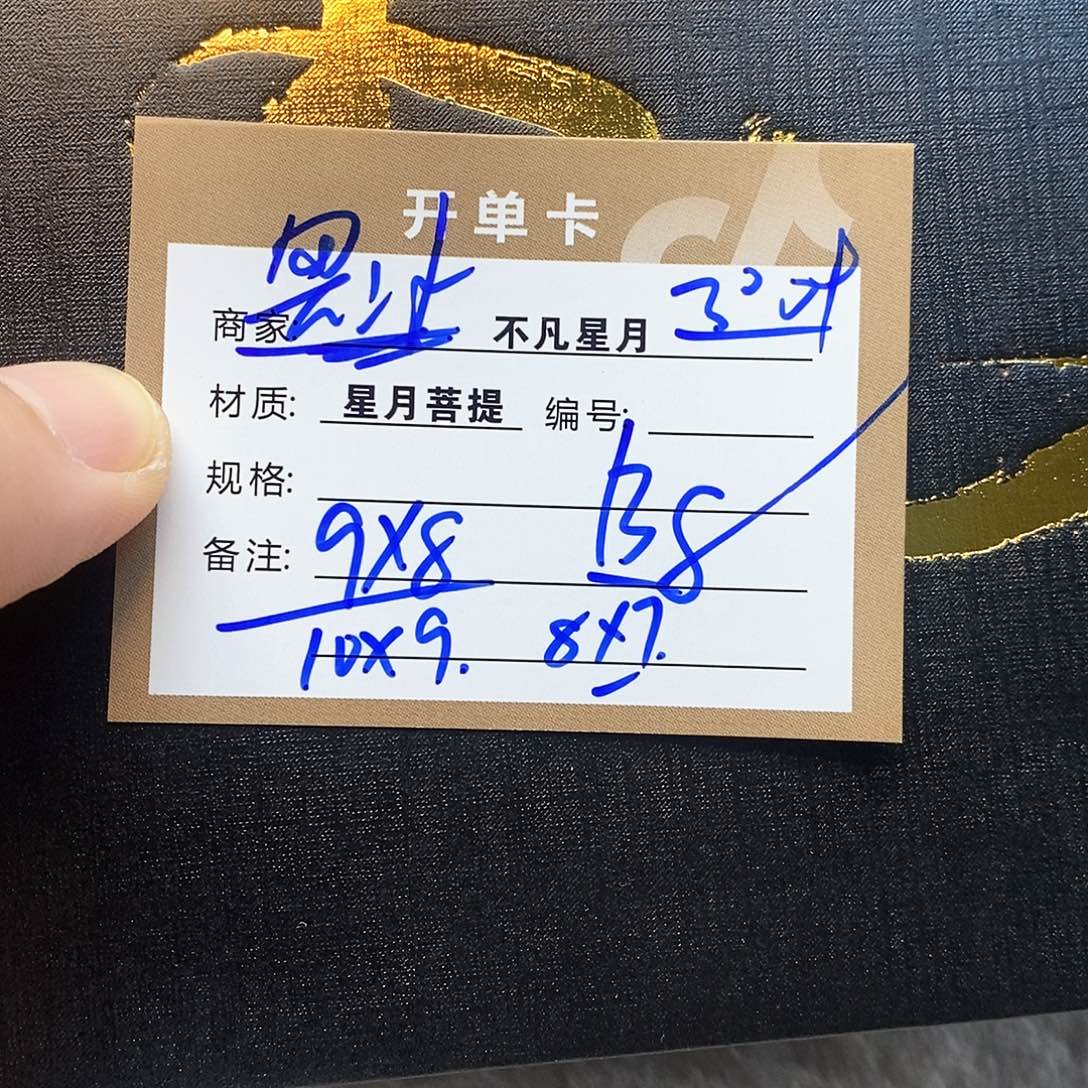 开单卡
商家: 不凡星月
材质: 星月菩提 编号:
规格:
备注: 9X8 138
10X9. 8X7.